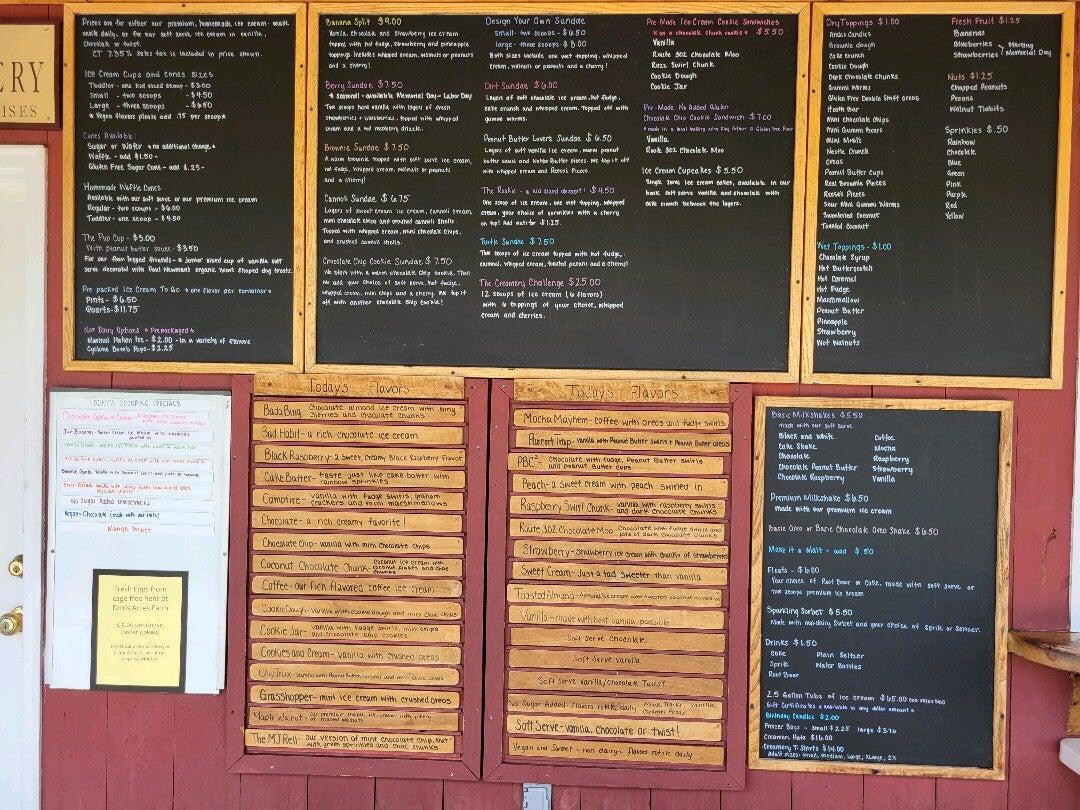 ERY
ISES
Prices are for either our premium, homemade ice cream - made
onsite daily, or for our soft serve ice cream in vanilla,
chocolate or twist.
CT 7.35% sales tax is included in price shown.
Ice Cream Cups and Cones Sizes
Toddler - one kid sized scoop - $3.00
Small - two scoops - $4.50
Large - three scoops - $6.50
* Vegan flavors please add .75 per scoop *
Cones Available:
Sugar or Wafer * no additional charge *
Waffle - add $1.50 -
Gluten Free Sugar Cone - add $.25 -
Homemade Waffle Cones
Available with our soft serve or our premium ice cream
Regular - two scoops - $6.00
Toddler - one scoop - $4.50
The Pup Cup - $3.00
With peanut butter sauce - $3.50
For our four legged friends - a junior sized cup of vanilla soft
serve decorated with Paul Newman's organic heart shaped dog treats
Pre-packed Ice Cream To Go * one flavor per container *
Pints - $6.50
Quarts - $11.75
Non Dairy Options * Prepackaged *
Marina's Italian Ice - $2.00 - in a variety of flavors
Cyclone Bomb Pops - $2.25
Banana Split $9.00
Vanilla, chocolate and strawberry ice cream
topped with hot fudge, strawberry and pineapple
toppings. Includes whipped cream, walnuts or peanuts
and a cherry!
Berry Sundae $7.50
* seasonal - available Memorial Day - Labor Day
Two scoops hard vanilla with layers of fresh
strawberries + blueberries, topped with whipped
cream and a red raspberry drizzle.
Brownie Sundae $7.50
A warm brownie topped with soft serve ice cream,
hot fudge, whipped cream, walnuts or peanuts
and a cherry!
Cannoli Sundae $6.75
Layers of sweet cream ice cream, cannoli cream,
mini chocolate chips and crushed cannoli shells.
Topped with whipped cream, mini chocolate chips,
and crushed cannoli shells.
Chocolate Chip Cookie Sundae $7.50
We start with a warm chocolate chip cookie. Then
we add your choice of soft serve, hot fudge,
whipped cream, mini chips and a cherry. We top it
off with another chocolate chip cookie!
Design Your Own Sundae
small - two scoops - $6.50
large - three scoops - $8.00
Both sizes include one wet topping, whipped
cream, walnuts or peanuts and a cherry!
Dirt Sundae $6.00
Layers of soft chocolate ice cream, hot fudge,
cake crunch and whipped cream. Topped off with
gummi worms.
Peanut Butter Lovers Sundae $6.50
Layers of soft vanilla ice cream, warm peanut
butter sauce and Nutter Butter pieces. We top it off
with whipped cream and Reese's Pieces.
The Rookie - a kid sized dessert! $4.50
One scoop of ice cream, one wet topping, whipped
cream, your choice of sprinkles with a cherry
on top! Add nuts for $1.25.
Turtle Sundae $7.50
Two scoops of ice cream topped with hot fudge,
caramel, whipped cream, toasted pecans and a cherry!
The Creamery Challenge $25.00
12 scoops of ice cream (6 flavors)
with 6 toppings of your choice, whipped
cream and cherries.
Pre-Made Ice Cream Cookie Sandwiches
* on a chocolate chunk cookie * $5.50
Vanilla
Route 302 Chocolate Moo
Razz Swirl Chunk
Cookie Dough
Cookie Jar
Pre-Made No Added Gluten
Chocolate Chip Cookie Sandwich $7.00
Vanilla
Route 302 Chocolate Moo
Ice Cream Cupcakes $5.50
Single serve ice cream cakes, available in our
basic soft serve vanilla and chocolate with
cake crunch between the layers.
Dry Toppings $1.00
Andes Candies
Brownie dough
Cake Crunch
Cookie Dough
Dark Chocolate Chunks
Gummi Worms
Gluten Free Double Stuff Oreos
Heath Bar
Mini Chocolate Chips
Mini Gummi Bears
Mini M+M's
Nestle Crunch
Oreos
Peanut Butter Cups
Real Brownie Pieces
Reese's Pieces
Sour Mini Gummi Worms
Sweetened Coconut
Toasted Coconut
Wet Toppings - $1.00
Chocolate Syrup
Hot Butterscotch
Hot Caramel
Hot Fudge
Marshmallow
Peanut Butter
Pineapple
Strawberry
Wet Walnuts
Fresh Fruit $1.25
Bananas
Blueberries
Strawberries
Starting
Memorial Day
Nuts $1.25
Chopped Peanuts
Pecans
Walnut Tidbits
Sprinkles $.50
Rainbow
Chocolate
Blue
Green
Pink
Purple
Red
Yellow
TODAY'S SCOOPING SPECIALS
Mango Sorbet
Fresh Eggs from
cage free hens at
Ferris Acres Farm
Today's Flavors
Bada Bing - Chocolate almond ice cream with bing
cherries and chocolate chunks
Bad Habit - a rich chocolate ice cream
Black Raspberry - a sweet, creamy Black Raspberry flavor
Cake Batter - taste just like cake batter with
rainbow sprinkles
Campfire - vanilla with fudge swirls, graham
crackers and mini marshmallows
Chocolate - a rich creamy favorite!
Chocolate Chip - vanilla with mini chocolate chips
Coconut Chocolate Chunk - coconut ice cream with
coconut flakes and choc
chunks
Coffee - our rich flavored coffee ice cream
Cookie Dough - vanilla with cookie dough and mini choc chips
Cookie Jar - vanilla with fudge swirls, mini chips
and chocolate chip cookies
Cookies and Cream - vanilla with crushed oreos
Grasshopper - mint ice cream with crushed oreos
Maple Walnut - our premier maple ice cream with plenty
of toasted walnuts
The MJ Rell - our version of mint chocolate chip, but
with green sprinkles and choc chunks
Today's Flavors
Mocha Mayhem - coffee with oreos and fudge swirls
Parent Trap - vanilla with Peanut Butter swirls + Peanut Butter oreos
PBC² - Chocolate with fudge, Peanut Butter swirls
and peanut butter cups
Peach - a sweet cream with peach swirled in
Raspberry Swirl Chunk - vanilla with raspberry swirls
and dark chocolate chunks
Route 302 Chocolate Moo - chocolate with fudge swirls and
lots of dark chocolate chunks
Strawberry - strawberry ice cream with chunks of strawberries
Sweet Cream - Just a tad sweeter than vanilla
Toasted Almond - Almond ice cream with toasted coconut mixed in
Vanilla - made with best vanilla possible
Soft Serve Chocolate
Soft Serve Vanilla
Soft Serve Vanilla/Chocolate Twist
No Sugar Added - flavors rotate daily
Soft Serve - vanilla, chocolate or twist!
Vegan and Sorbet - non dairy - flavors rotate daily
Basic Milkshakes $5.50
made with our soft serve
Black and White
Cake Shake
Chocolate
Chocolate Peanut Butter
Chocolate Raspberry
Coffee
Mocha
Raspberry
Strawberry
Vanilla
Premium Milkshake $6.50
made with our premium ice cream
Basic Oreo or Basic Chocolate Oreo Shake $6.50
Make it a Malt - add $.50
Floats - $6.00
Your choice of Root Beer or Coke, made with soft serve or
two scoops premium ice cream.
Sparkling Sorbet $5.50
Made with nondairy Sorbet and your choice of Sprite or Seltzer.
Drinks $1.50
Coke
Sprite
Root Beer
Plain Seltzer
Water Bottles
2.5 Gallon Tubs of ice cream $65.00
Gift Certificates * available in any dollar amount *
Birthday Candles $2.00
Freezer Bags - small $2.25 large $3.76
Creamery Hats $16.00
Creamery T-Shirts $14.00
Adult sizes: small, medium, large, XLarge, 2X